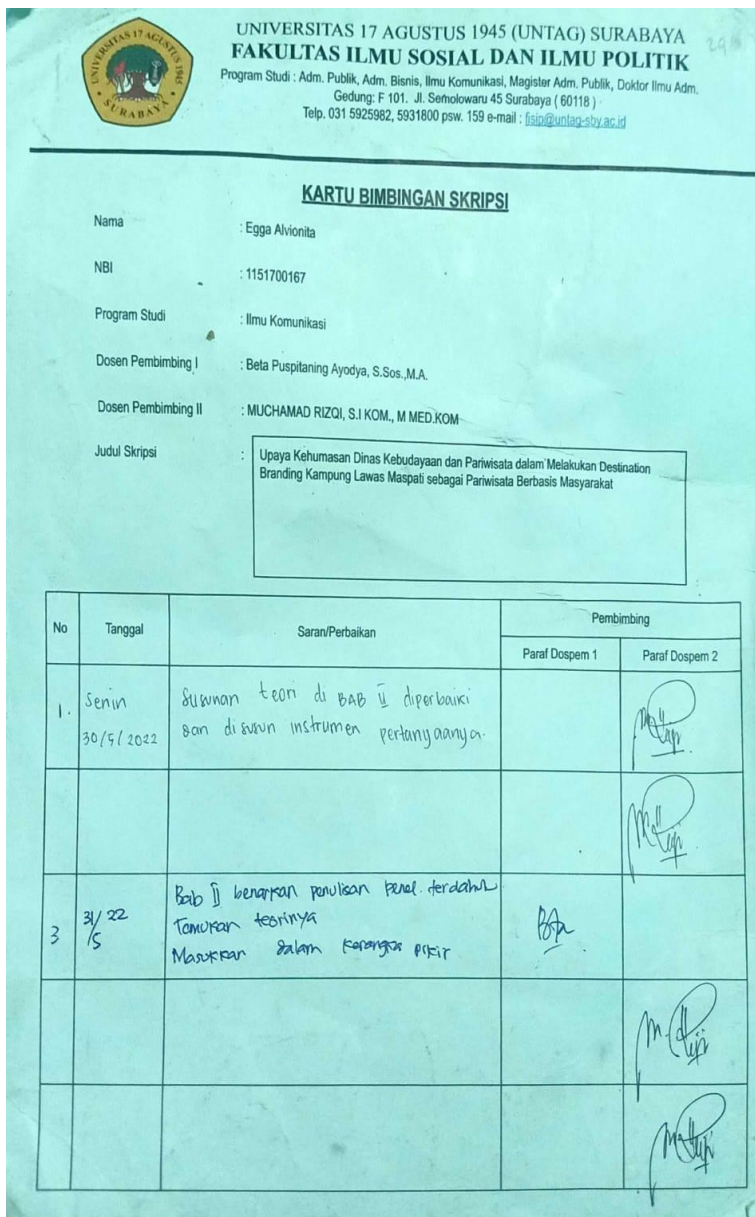 UNIVERSITAS 17 AGUSTUS 1945
SURABAYA
UNIVERSITAS 17 AGUSTUS 1945 (UNTAG) SURABAYA
FAKULTAS ILMU SOSIAL DAN ILMU POLITIK
Program Studi : Adm. Publik, Adm. Bisnis, Ilmu Komunikasi, Magister Adm. Publik, Doktor Ilmu Adm.
Gedung: F 101. Jl. Semolowaru 45 Surabaya ( 60118 )
Telp. 031 5925982, 5931800 psw. 159 e-mail : fisip@untag-sby.ac.id
KARTU BIMBINGAN SKRIPSI
Nama : Egga Alvionita
NBI : 1151700167
Program Studi : Ilmu Komunikasi
Dosen Pembimbing I : Beta Puspitaning Ayodya, S.Sos.,M.A.
Dosen Pembimbing II : MUCHAMAD RIZQI, S.I KOM., M MED.KOM
Judul Skripsi : Upaya Kehumasan Dinas Kebudayaan dan Pariwisata dalam Melakukan Destination
Branding Kampung Lawas Maspati sebagai Pariwisata Berbasis Masyarakat
No Tanggal Saran/Perbaikan Pembimbing
Paraf Dospem 1 Paraf Dospem 2
1. Senin Susunan teori di BAB II diperbaiki
30/5/2022 dan disusun instrumen pertanyaanya.
Bab II benarkan penulisan penel. terdahulu
3 31/5 22 Temukan teorinya
Masukkan dalam kerangka pikir